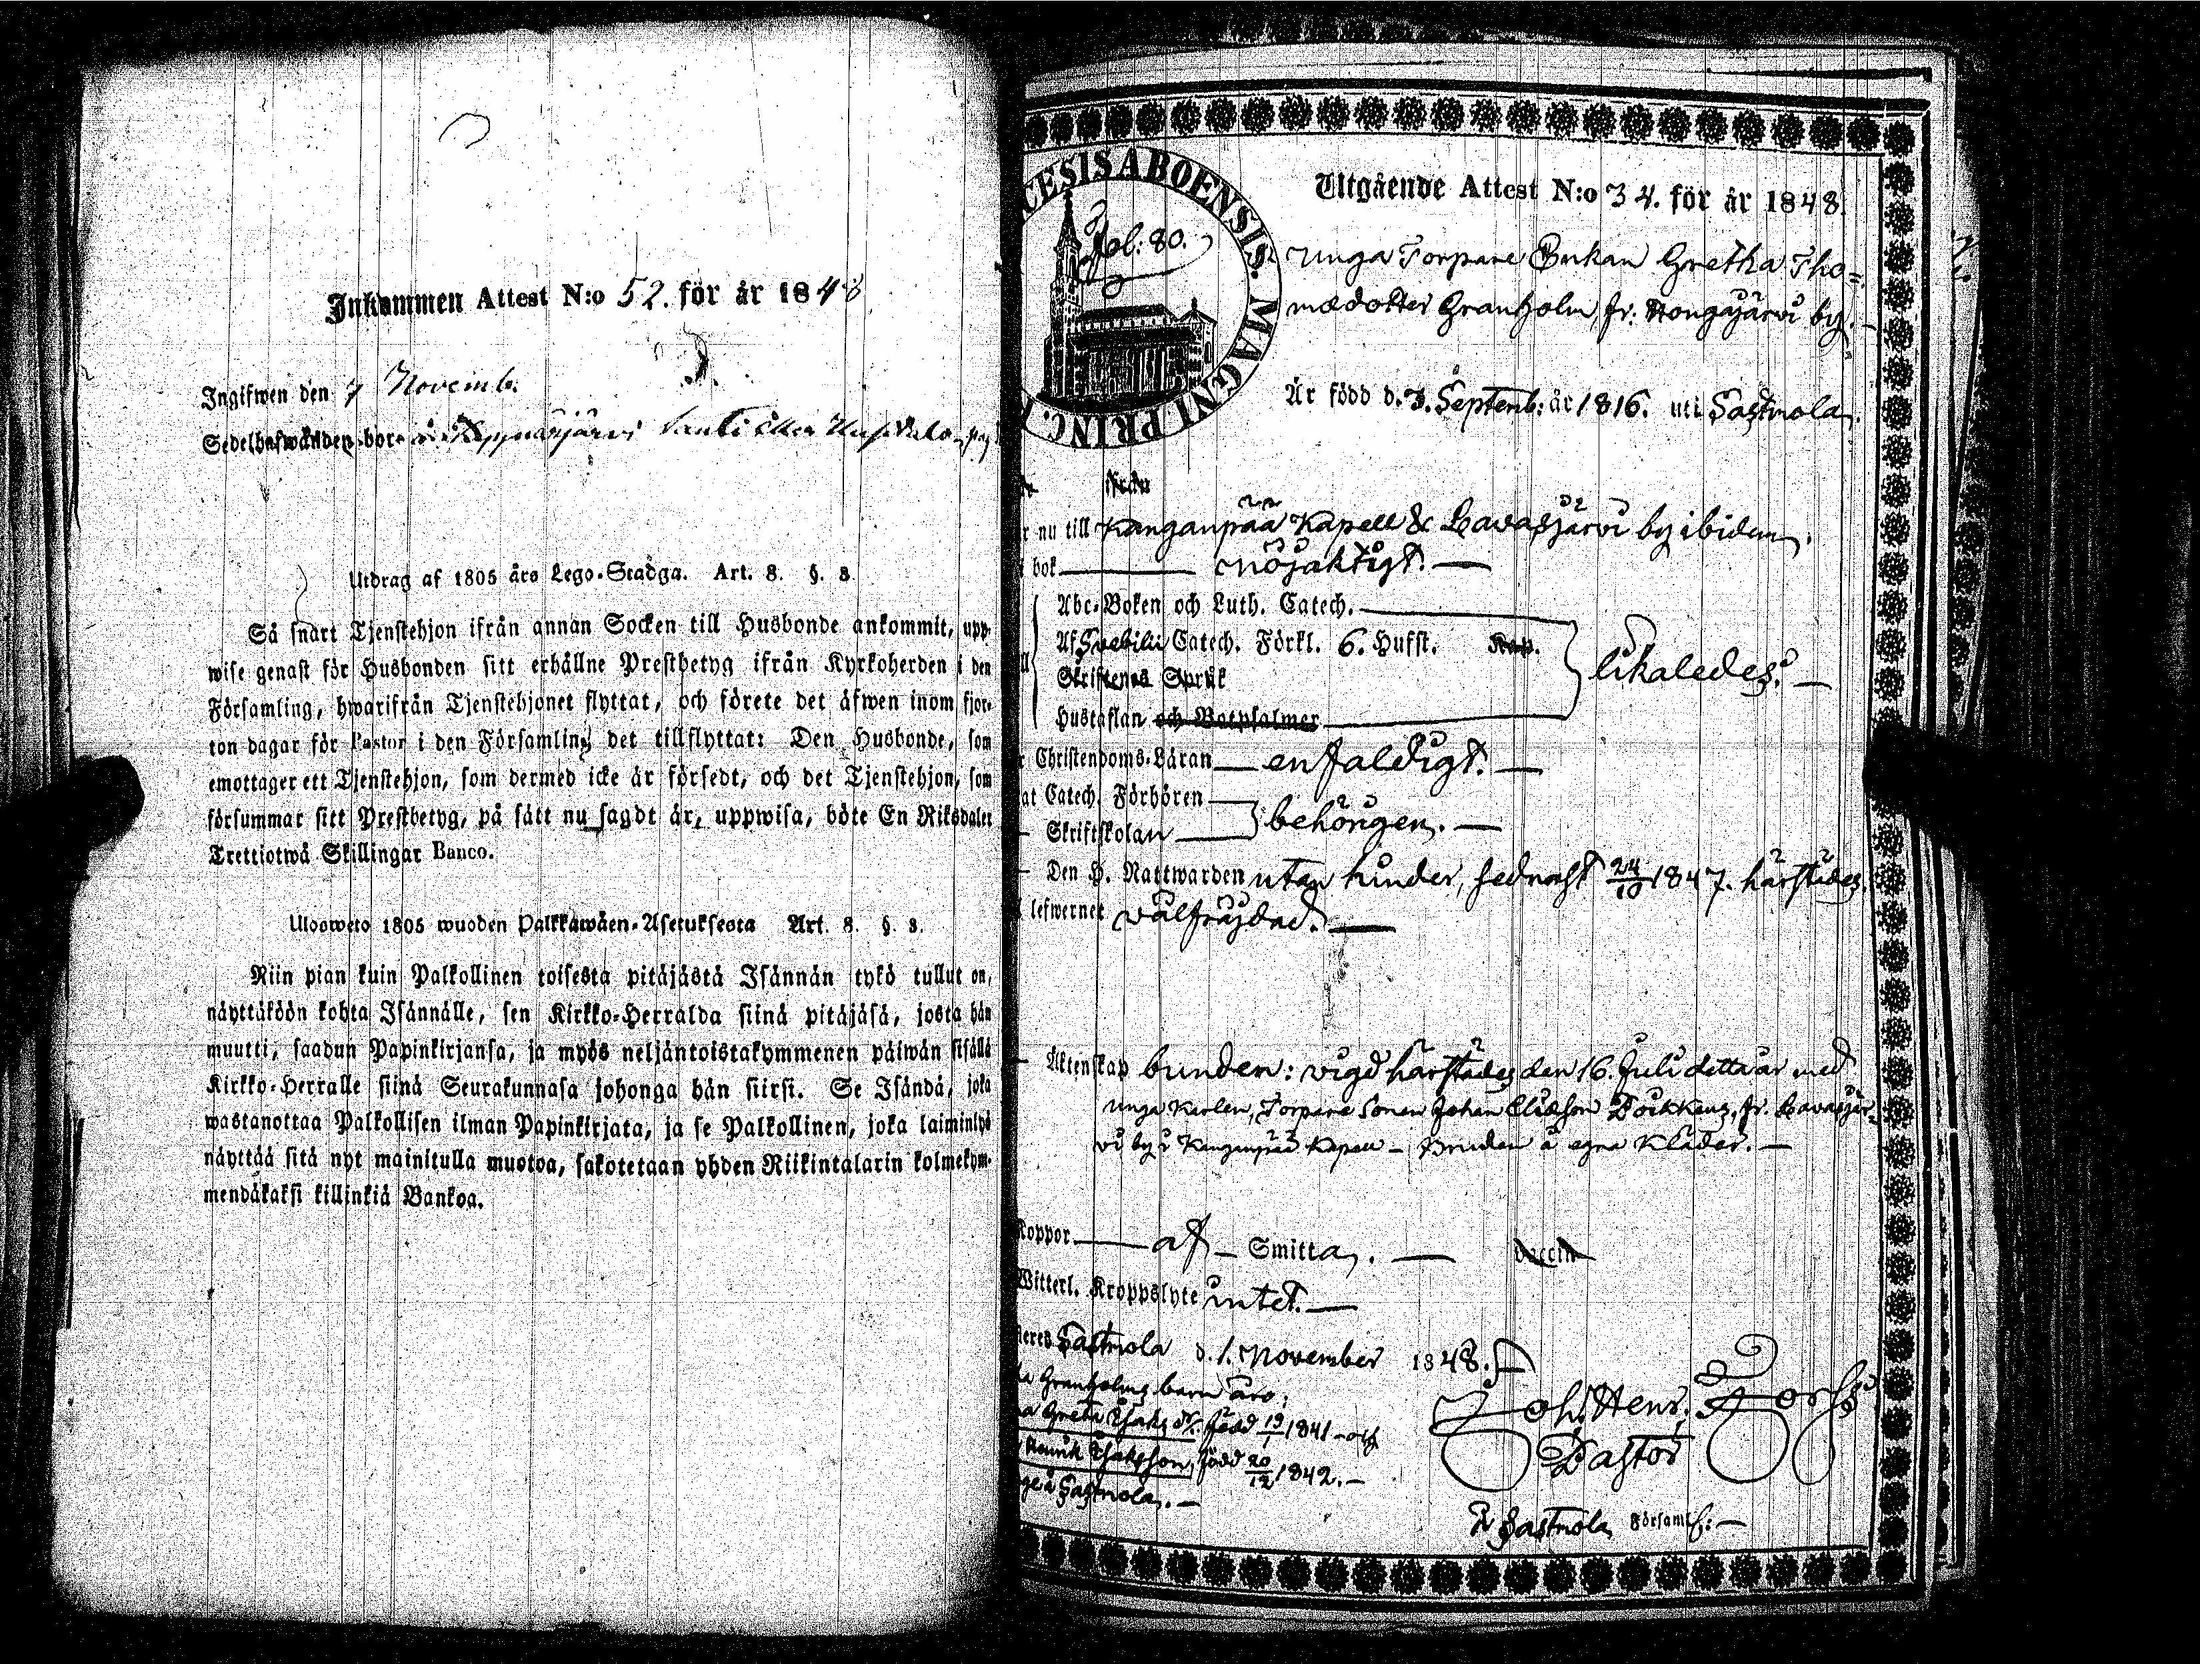 Inkommen Attest N:o 52. för år 1848
Ingifwen den 7 Novemb.
Sedelhafwanden bor
Utdrag af 1805 års Lego-Stadga. Art. 8. §. 8.
Så snart Tjenstehjon ifrån annan Socken till Husbonde ankommit, upp-
wise genast för Husbonden sitt erhållne Prestbetyg ifrån Kyrkoherden i den
Församling, hwarifrån Tjenstehjonet flyttat, och förete det äfwen inom fjor-
ton dagar för Pastor i den Församling det tillflyttat: Den Husbonde, som
emottager ett Tjenstehjon, som dermed icke är försedt, och det Tjenstehjon, som
försummar sitt Prestbetyg, på sätt nu sagdt är, uppwisa, böte En Riksdaler
Trettiotwå Skillingar Banco.
Ulosweto 1805 wuoden Palkkawäen-Asetuksesta Art. 8. §. 8.
Niin pian kuin Palkollinen toisesta pitäjästä Isännän tykö tullut on,
näyttäköön kohta Isännälle, sen Kirkko-Herralda siinä pitäjäsä, josta hän
muutti, saadun Papinkirjansa, ja myös neljäntoistakymmenen päiwän sisällä
Kirkko-Herralle siinä Seurakunnasa johonga hän siirsi. Se Isändä, joka
wastanottaa Palkollisen ilman Papinkirjata, ja se Palkollinen, joka laiminlyö
näyttää sitä nyt mainitulla muotoa, sakotetaan yhden Riikintalarin kolmekym-
mendäkaksi killinkiä Bankoa.
CESIS ABOENSIS. MAGNI PRINC.
Fol: 80.
Utgående Attest N:o 34. för år 1848.
Unga Torpare Enkan Gretha Tho-
mædotter Granholm, fr: Hongajärvi by.
Är född d. 3. Septemb: år 1816. uti Sastmola.
nu till Kanganpää Kapell & Lavasjärvi by ibidem.
bok nöjaktigt.
Abc-Boken och Luth. Catech.
Af Svebilii Catech. Förkl. 6. Hufst.
Skriftenes Språk
Hustaflan och Botpsalmer
likaledes.
Christendoms-Läran enfaldigt.
at Catech. Förhören
Skriftskolan
behörigen.
Den H. Nattwarden utan hinder, sednast 24/10 1847. härstädes.
lefwernet välfräjdad.
Äktenskap bunden: vigd härstädes den 16. Juli detta år med
unga Karlen, Torpare Sonen Johan Eliæson Poikkeus, fr. Lavasjär-
vi by i Kanganpää Kapell - Bruden i egna Kläder.
Koppor af Smitta. Vaccin
Witterl. Kroppslyte intet.
Sastmola d. 1. November 1848.
Granholms barn äro:
Greta Isaks dr. född 19/1 1841 - och
Henrik Isaksson, född 20/12 1842.
i Sastmola.
Joh. Henr. Forss
Pastor
i Sastmola Församl: